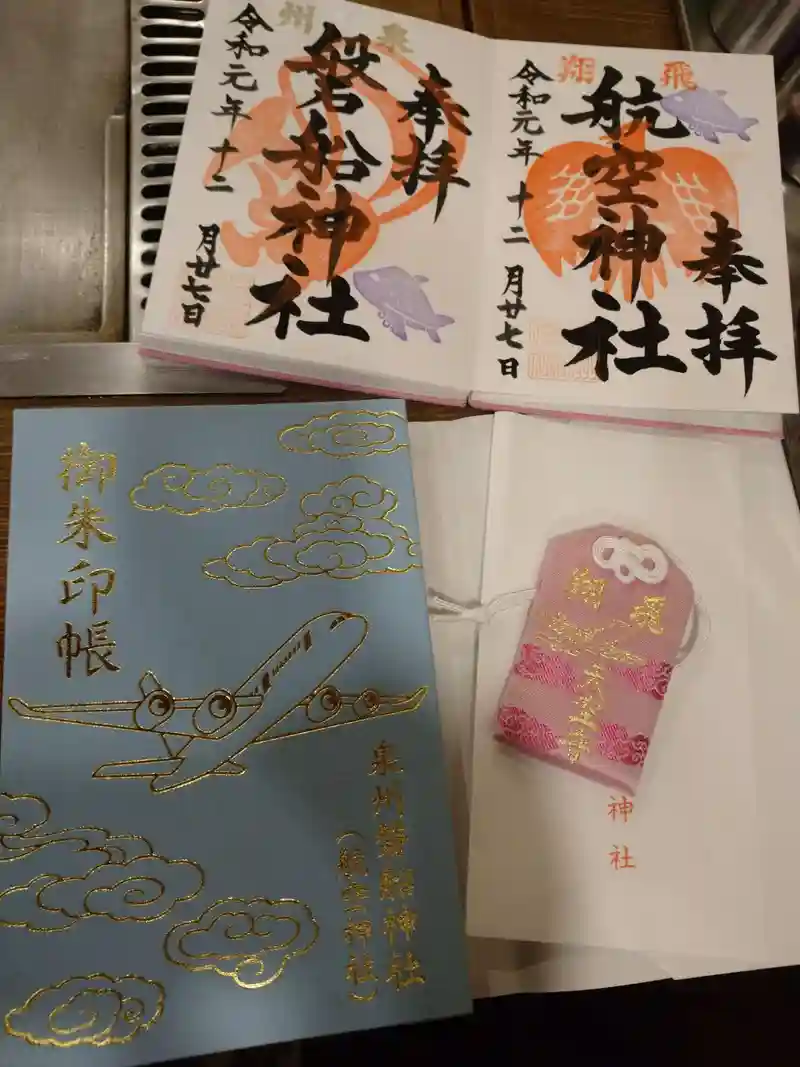 飛翔
奉拝
航空神社
令和元年十二月廿七日
泉州
奉拝
磐船神社
令和元年十二月廿七日
御朱印帳
泉州磐船神社
(航空神社)
飛翔
神社